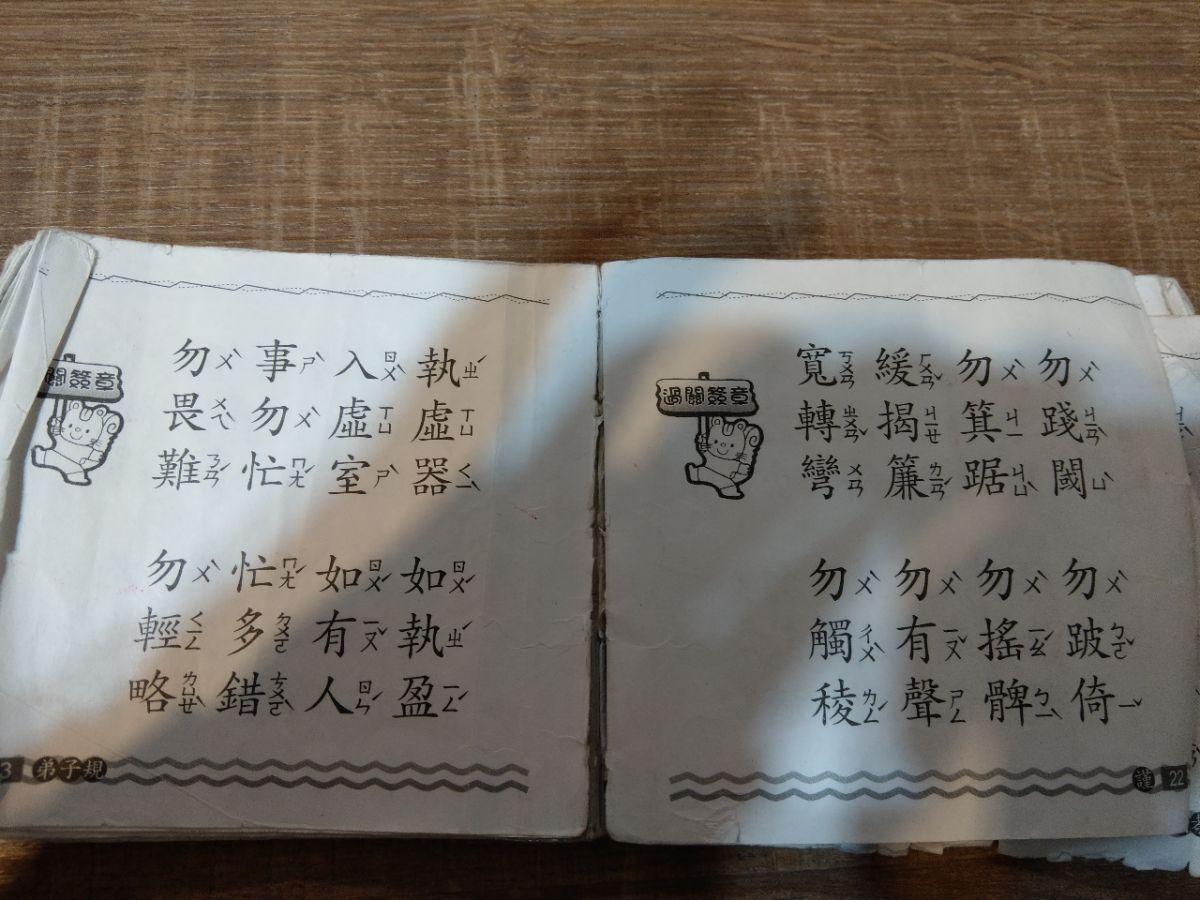 勿ㄨˋ踐ㄐㄧㄢˋ閾ㄩˋ
勿ㄨˋ跛ㄅㄛˇ倚ㄧˇ
勿ㄨˋ箕ㄐㄧ踞ㄐㄩˋ
勿ㄨˋ搖ㄧㄠˊ髀ㄅㄧˋ
緩ㄏㄨㄢˇ揭ㄐㄧㄝ簾ㄌㄧㄢˊ
勿ㄨˋ有ㄧㄡˇ聲ㄕㄥ
寬ㄎㄨㄢ轉ㄓㄨㄢˇ彎ㄨㄢ
勿ㄨˋ觸ㄔㄨˋ稜ㄌㄥˊ
過關簽章
謹 22
執ㄓˊ虛ㄒㄩ器ㄑㄧˋ
如ㄖㄨˊ執ㄓˊ盈ㄧㄥˊ
入ㄖㄨˋ虛ㄒㄩ室ㄕˋ
如ㄖㄨˊ有ㄧㄡˇ人ㄖㄣˊ
事ㄕˋ勿ㄨˋ忙ㄇㄤˊ
忙ㄇㄤˊ多ㄉㄨㄛ錯ㄘㄨㄛˋ
勿ㄨˋ畏ㄨㄟˋ難ㄋㄢˊ
勿ㄨˋ輕ㄑㄧㄥ略ㄌㄩㄝˋ
關簽章
3 弟子規